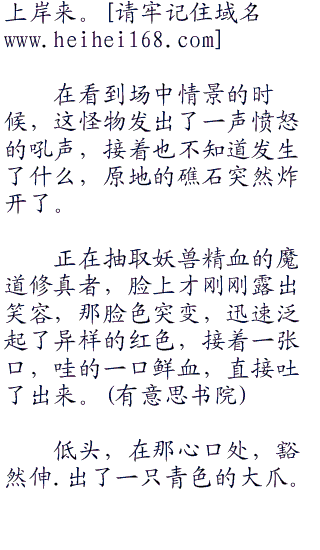 上岸来。[请牢记住域名
www.heihei168.com]
在看到场中情景的时
候，这怪物发出了一声愤怒
的吼声，接着也不知道发生
了什么，原地的礁石突然炸
开了。
正在抽取妖兽精血的魔
道修真者，脸上才刚刚露出
笑容，那脸色突变，迅速泛
起了异样的红色，接着一张
口，哇的一口鲜血，直接吐
了出来。(有意思书院)
低头，在那心口处，豁
然伸.出了一只青色的大爪。